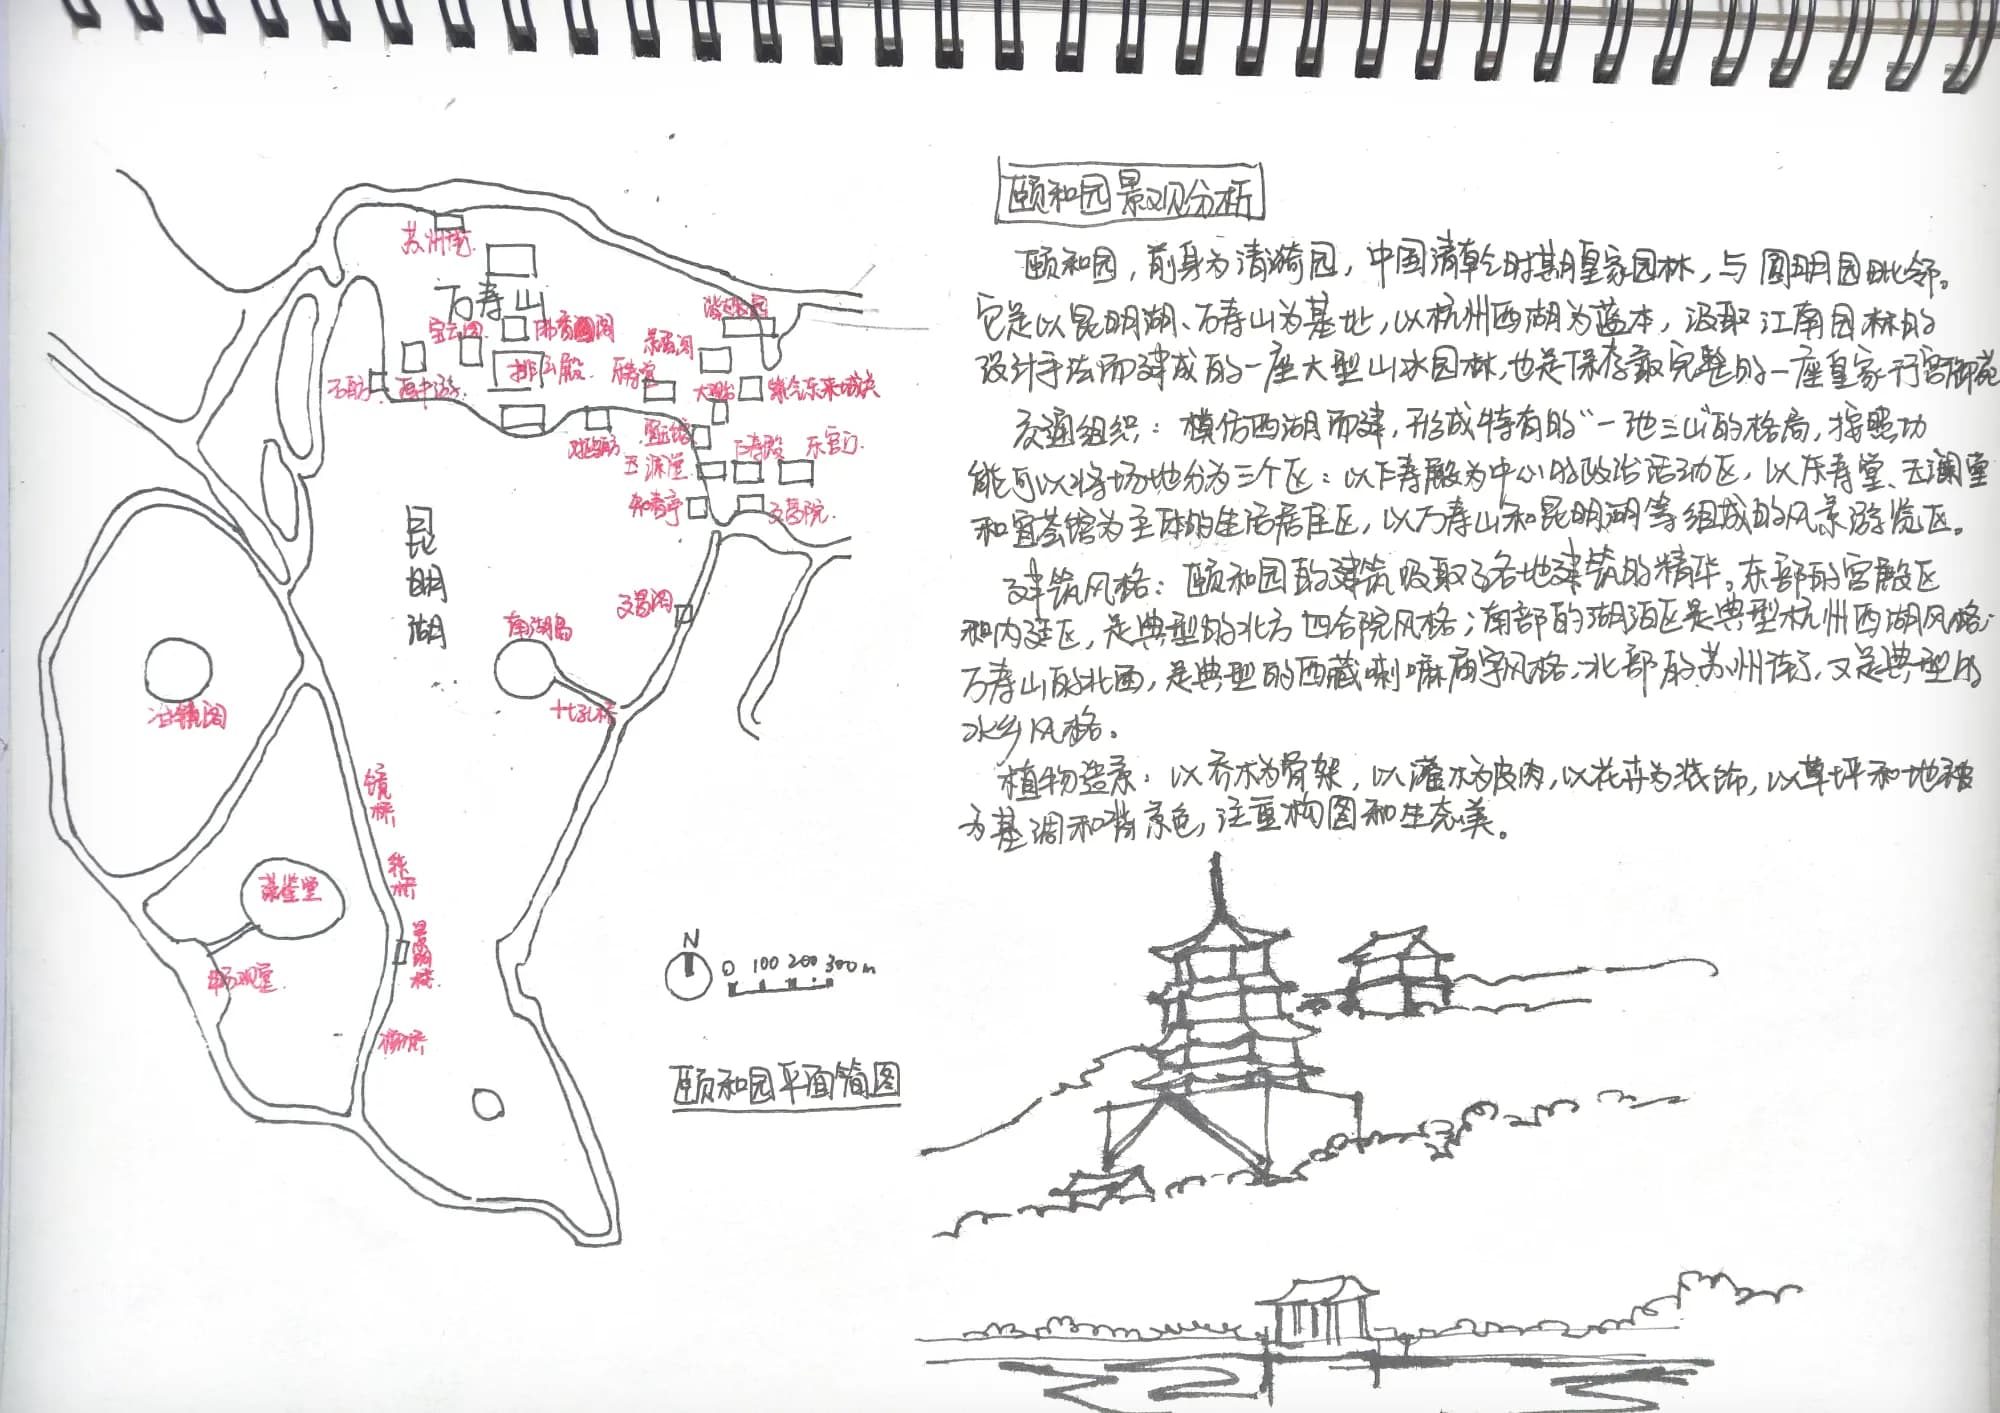 颐和园景观分析
颐和园，前身为清漪园，中国清朝时期皇家园林，与圆明园毗邻。
它是以昆明湖、万寿山为基址，以杭州西湖为蓝本，汲取江南园林的
设计手法而建成的一座大型山水园林，也是保存最完整的一座皇家行宫御苑
交通组织：模仿西湖而建，形成特有的“一池三山”的格局，按照功
能可以将场地分为三个区：以仁寿殿为中心的政治活动区，以乐寿堂、玉澜堂
和宜芸馆为主体的生活居住区，以万寿山和昆明湖等组成的风景游览区。
建筑风格：颐和园的建筑吸取了各地建筑的精华。东部的宫殿区
和内廷区，是典型的北方四合院风格；南部的湖泊区是典型杭州西湖风格；
万寿山的北面，是典型的西藏喇嘛庙宇风格；北部的苏州街，又是典型的
水乡风格。
植物造景：以乔木为骨架，以灌木为皮肉，以花卉为装饰，以草坪和地被
为基调和背景色，注重构图和生态美。
苏州街
万寿山
宝云阁
佛香阁
谐趣园
景福阁
石舫
画中游
排云殿
乐寿堂
大戏台
紫气东来城关
对鸥舫
宜芸馆
玉澜堂
仁寿殿
东宫门
知春亭
文昌院
昆明湖
文昌阁
南湖岛
十七孔桥
治镜阁
镜桥
练桥
藻鉴堂
畅观堂
柳桥
N
0 100 200 300m
颐和园平面简图